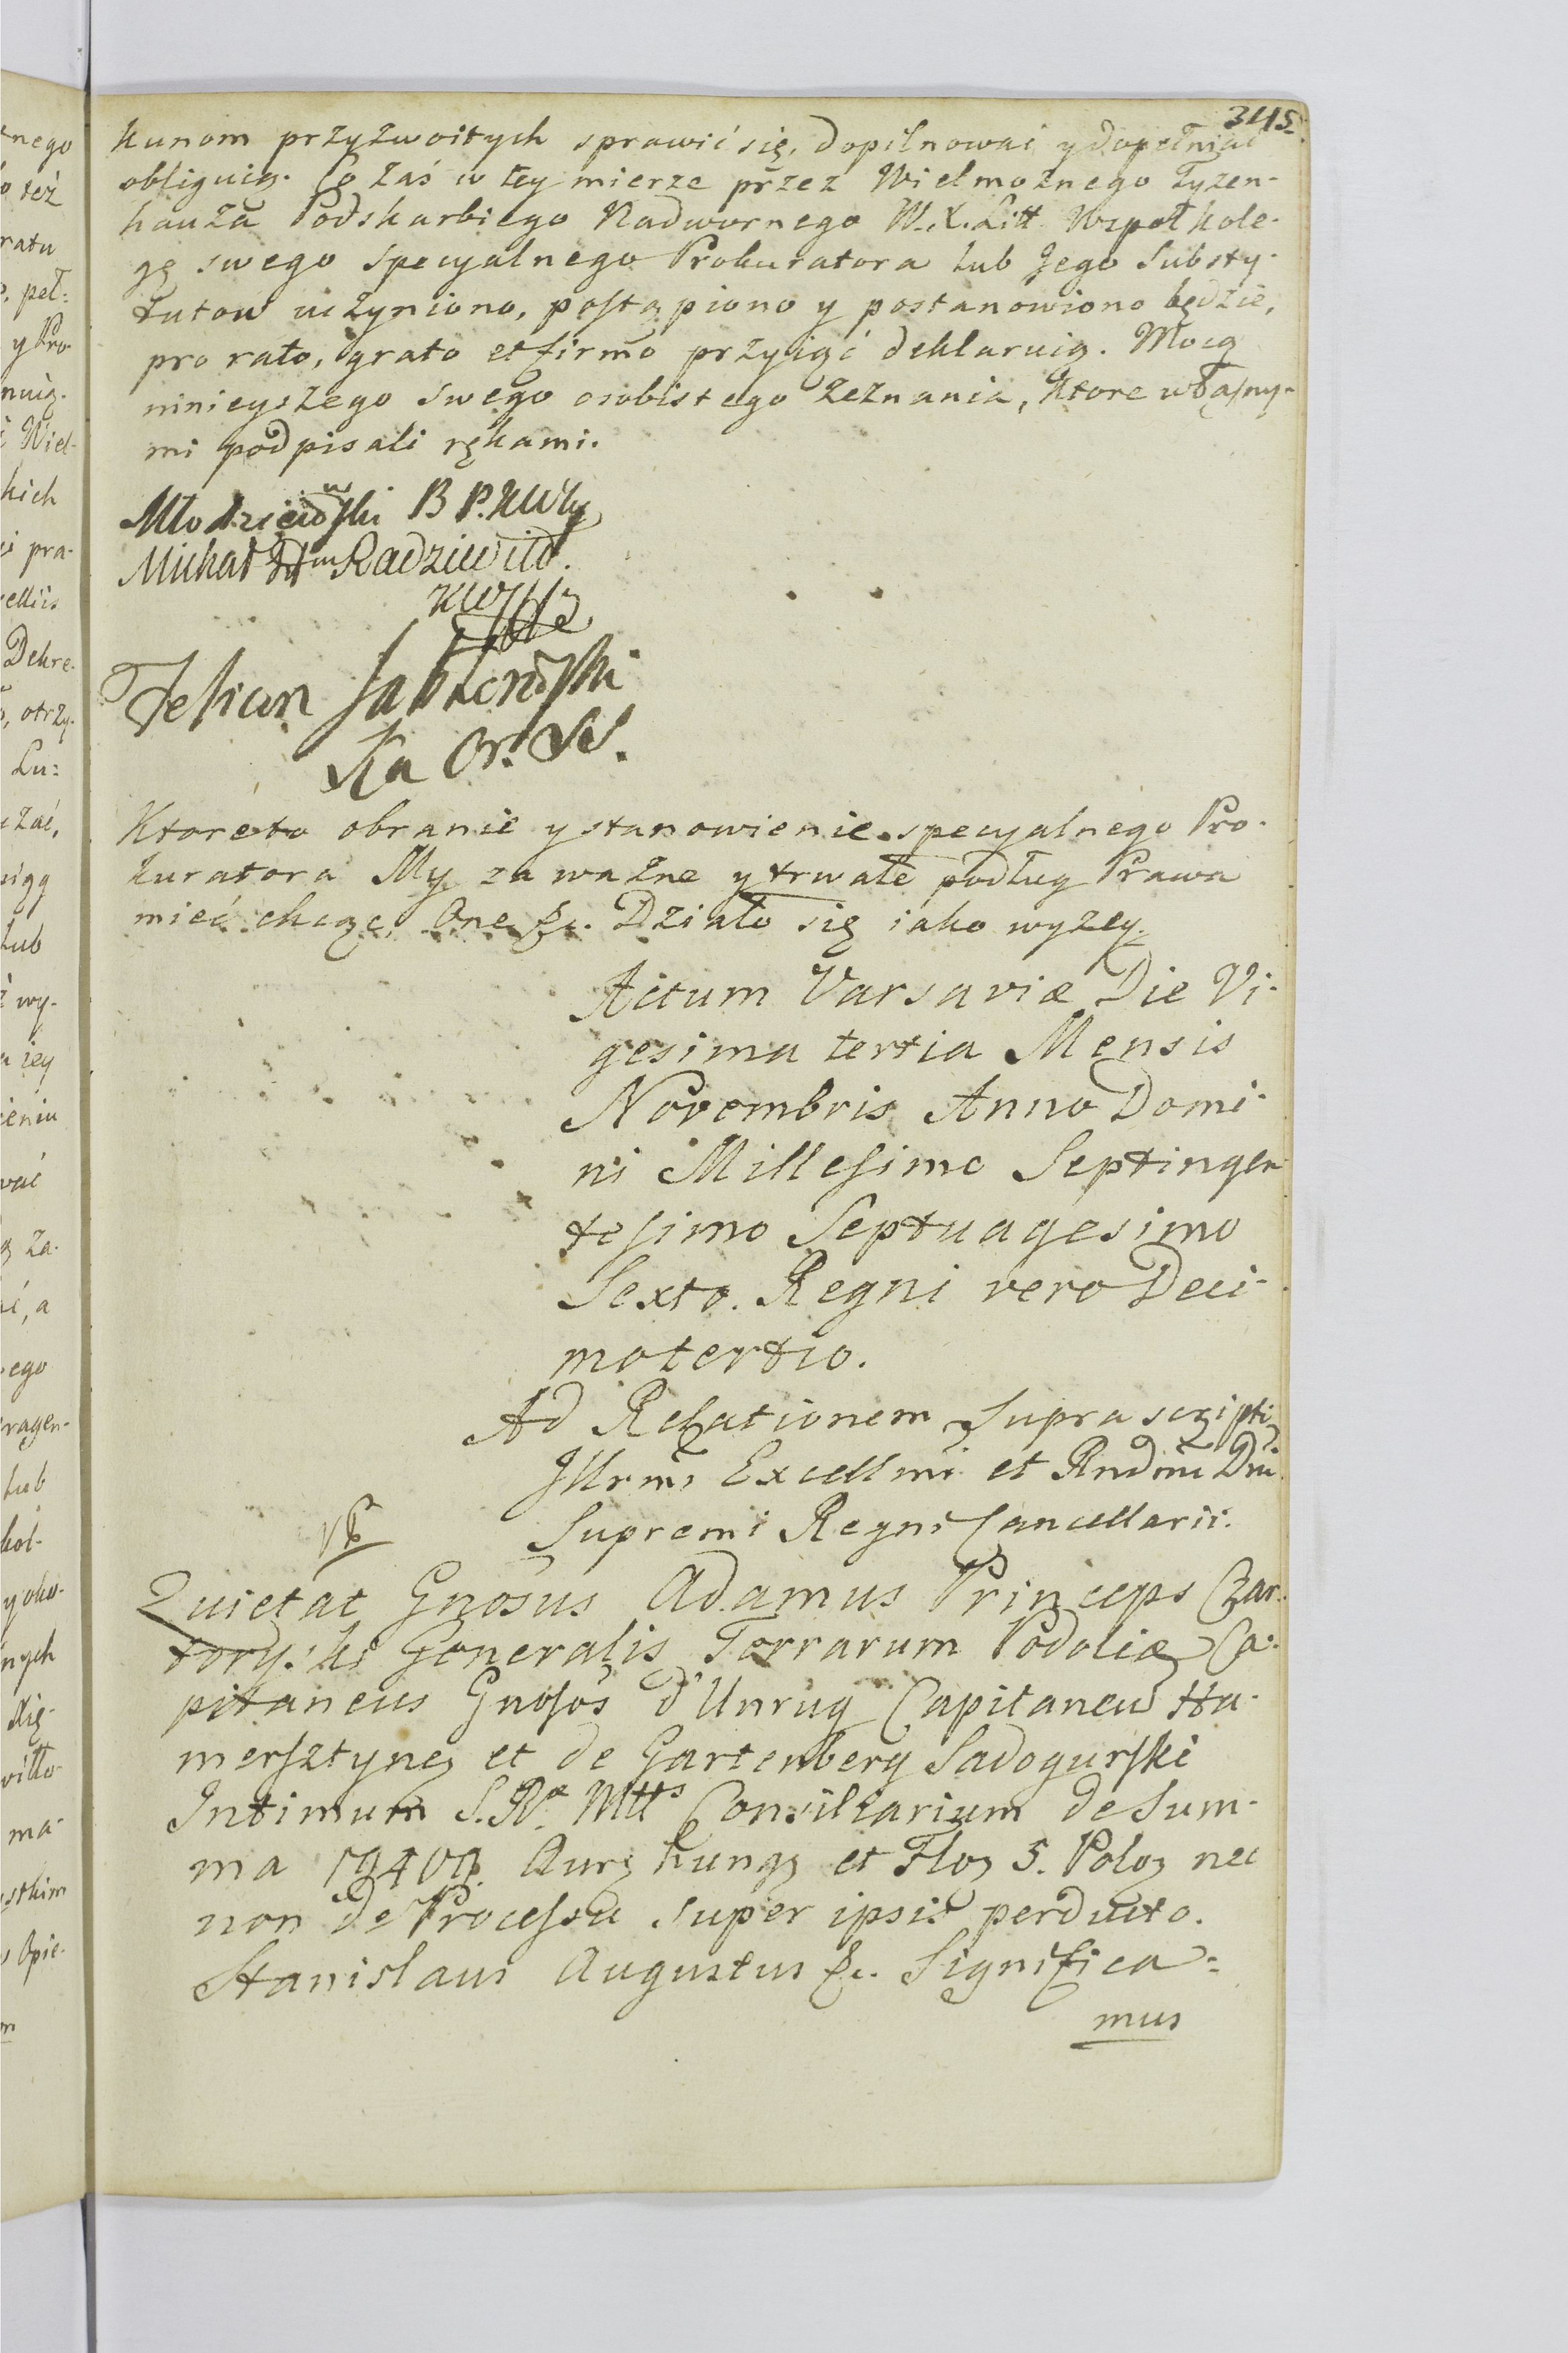 345
kunom przyzwoitych sprawić się, dopilnować y dopełniać
obliguią. Co zaś w tey mierze przez Wielmożnego Tyzen-
hauza Podskarbiego Nadwornego W. X. Litt. Wspołkole-
gę swego specyalnego Prokuratora lub Jego Substy-
tutow uczyniono, postąpiono y postanowiono będzie,
pro rato, grato et firmo przyiąć deklaruią. Mocą
ninieyszego swego osobistego zeznania, ktore własny-
mi podpisali rękami.
Młodzieiowski B P. KWK
Michał Radziwiłł
Felician Jabłonowski
Ktoreto obranie y stanowienie specyalnego Pro-
kuratora My za ważne y trwałe podług Prawa
mieć chcąc, One &c. Działo się iako wyzey.
Actum Varsaviæ Die Vi-
gesima tertia Mensis
Novembris Anno Domi-
ni Millesimo Septingen
tesimo Septuagesimo
Sexto. Regni vero Deci-
motertio.
Ad Relationem Suprascripti
Illrmi Excellmi et Rndmi Dni
Supremi Regni Cancellarii.
Quietat Gnosus Adamus Princeps Czar-
toryski Generalis Terrarum Podoliæ Ca-
pitaneus Gnosos d'Unrug Capitaneū Ha-
mersztyneȝ et de Gartenberg Sadogurski
Intimum S. Ræ Mttis Consiliarium de Sum-
ma 19409. Aurȝ hungȝ et Floȝ 5. Poloȝ nec
non de Processu super ipsis perducto.
Stanislaus Augustus &c. Significa-
mus